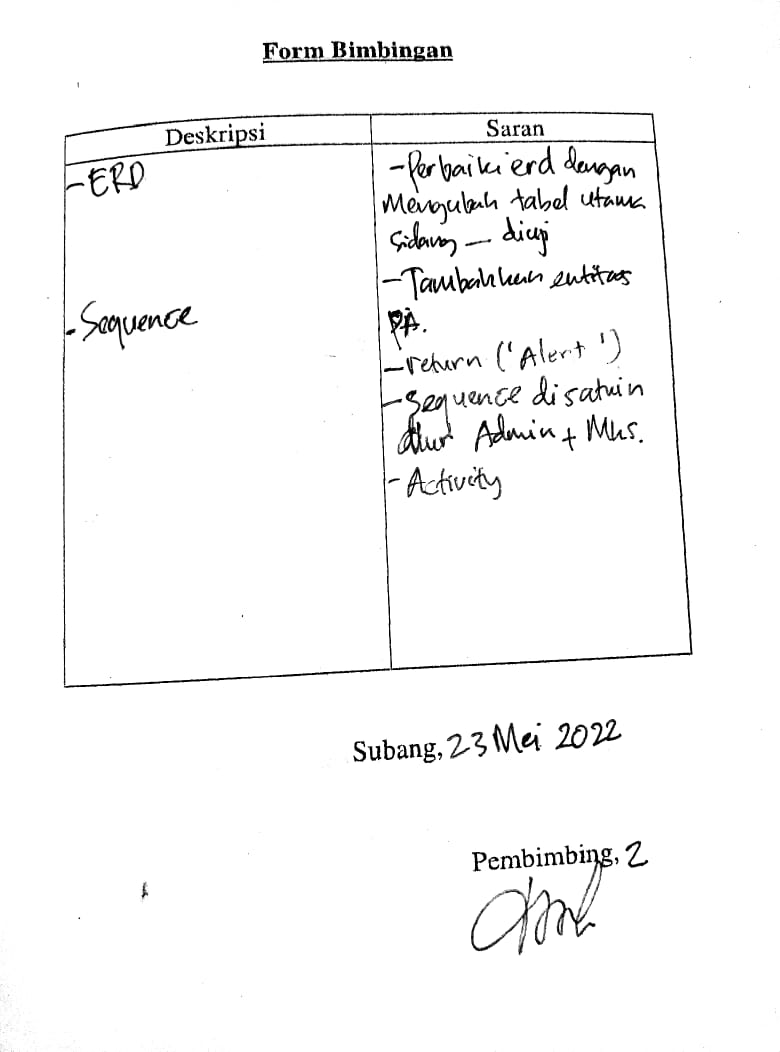 Form Bimbingan
Deskripsi
Saran
- ERD
- Perbaiki erd dengan
Mengubah tabel utama
Sidang — diuji
- Tambahkan entitas
PA.
- Sequence
- return ('Alert')
- Sequence disatuin
Alur Admin + Mhs.
- Activity
Subang, 23 Mei 2022
Pembimbing, 2